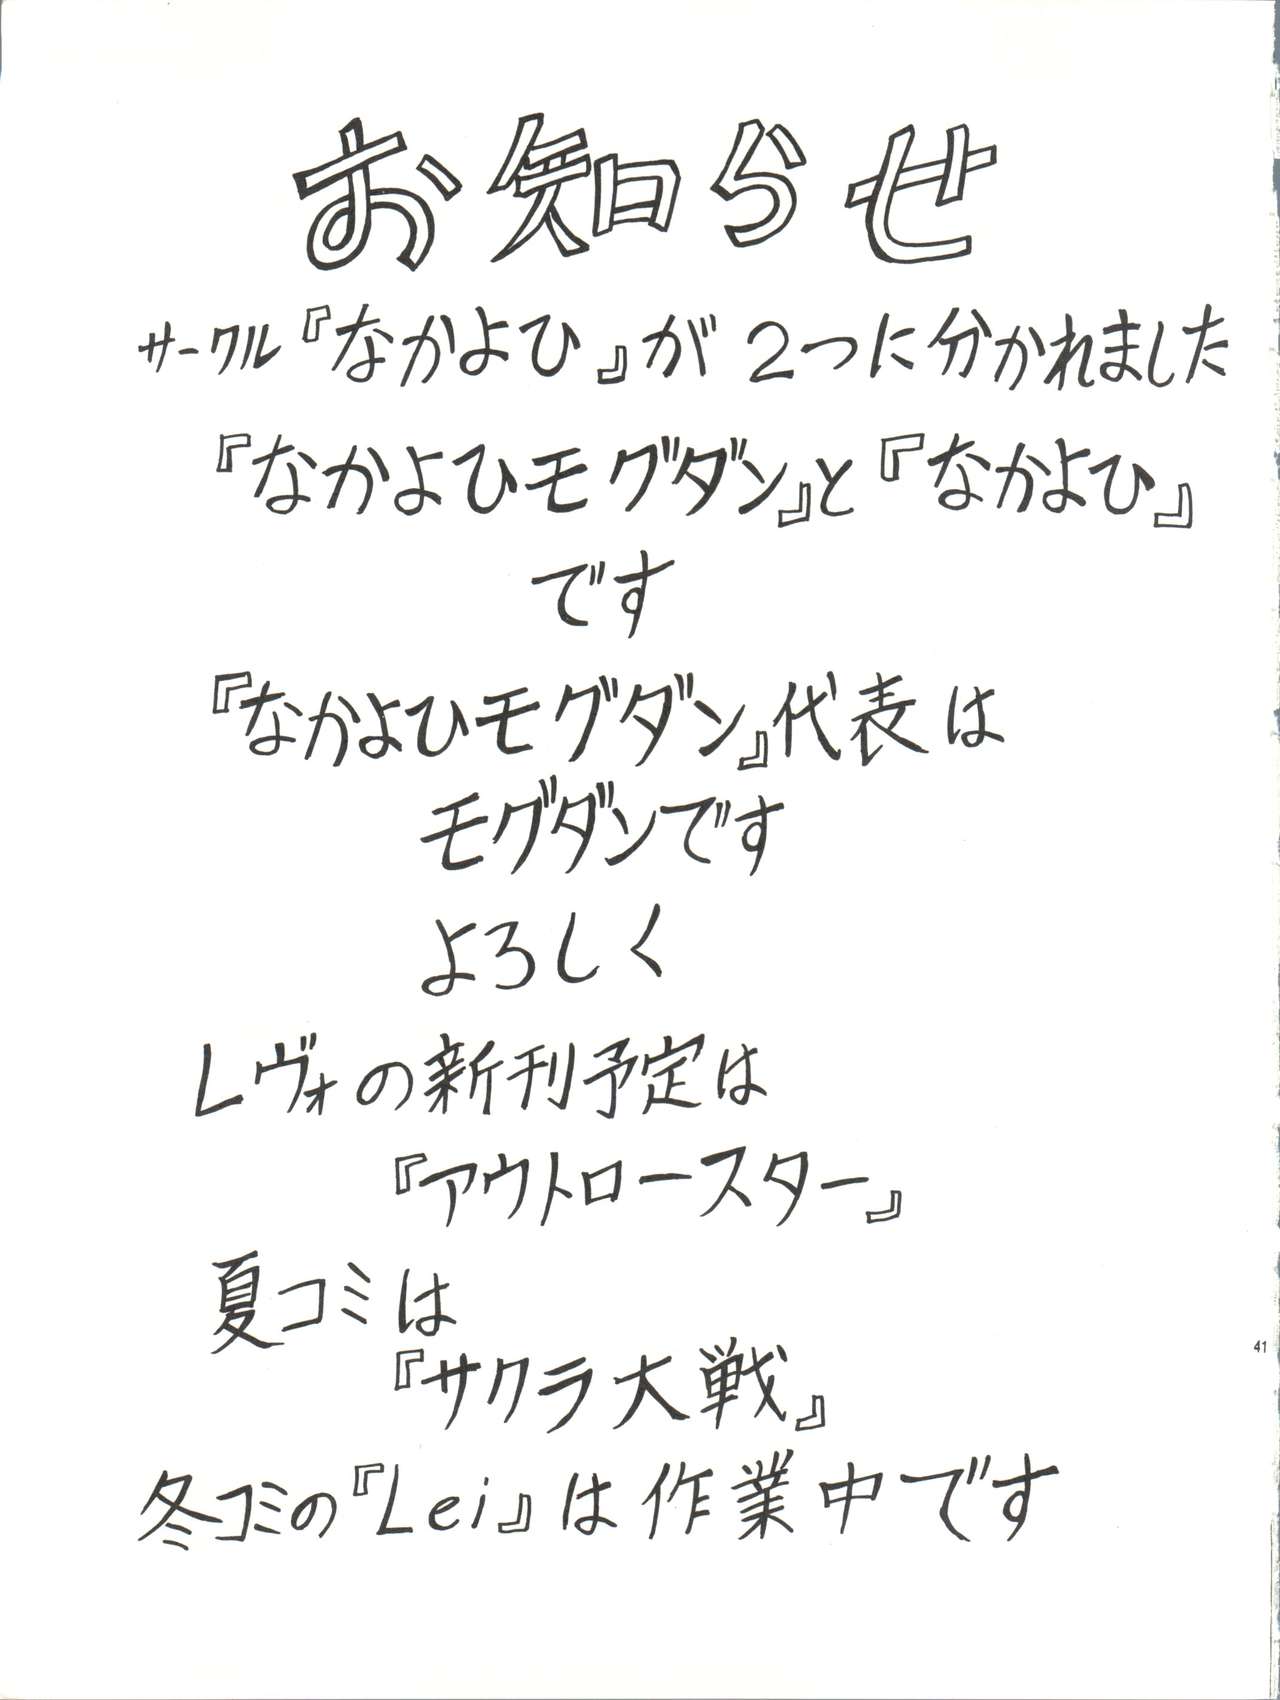 お知らせ
サークル『なかよひ』が2つに分かれました
『なかよひモグダン』と『なかよひ』
です
『なかよひモグダン』代表は
モグダンです
よろしく
レヴォの新刊予定は
『アウトロースター』
夏コミは
『サクラ大戦』
冬コミの『Lei』は作業中です
41